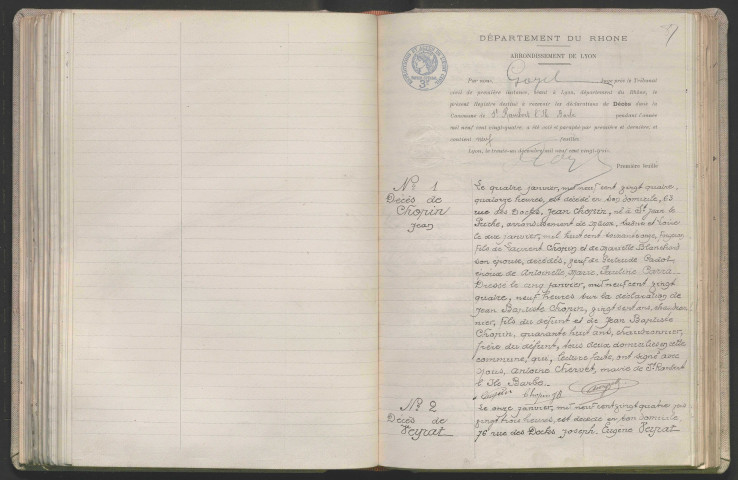 DÉPARTEMENT DU RHONE
ARRONDISSEMENT DE LYON
Par nous, Juge près le Tribunal
civil de première instance, séant à Lyon, département du Rhône, le
présent Registre destiné à recevoir les déclarations de Décès dans la
Commune de St Rambert l'Ile Barbe pendant l'année
mil neuf cent vingt-quatre, a été coté et paraphé par première et dernière, et
contient feuilles
Lyon, le trente-et-un décembre mil neuf cent vingt-trois
Première feuille
No 1
Décès de
Chopin
Jean
Le quatre janvier, mil neuf cent vingt quatre,
quatorze heures, est décédé en son domicile, 63
rue des Docks, Jean Chopin, né à St
arrondissement de Saône et Loire
le six janvier, mil huit cent soixante
fils de Laurent Chopin et de Blanchard
son épouse, décédés, veuf de Gertrude
époux de Antoinette Marie Pauline
Dressé le cinq janvier, mil neuf cent vingt
quatre, neuf heures sur la déclaration de
Jean Baptiste Chopin, vingt sept ans, chaudron-
nier, fils du défunt et de Jean Baptiste
Chopin, quarante huit ans, chaudronnier,
frère du défunt, tous deux domiciliés en cette
commune, qui, lecture faite, ont signé avec
Nous, Antoine Chervet, maire de St Rambert
l'Ile Barbe.
Chopin JB
No 2
Décès de
Veyrat
Le onze janvier, mil neuf cent vingt quatre
vingt trois heures, est décédé en son domicile,
76 rue des Docks Joseph, Eugène Veyrat